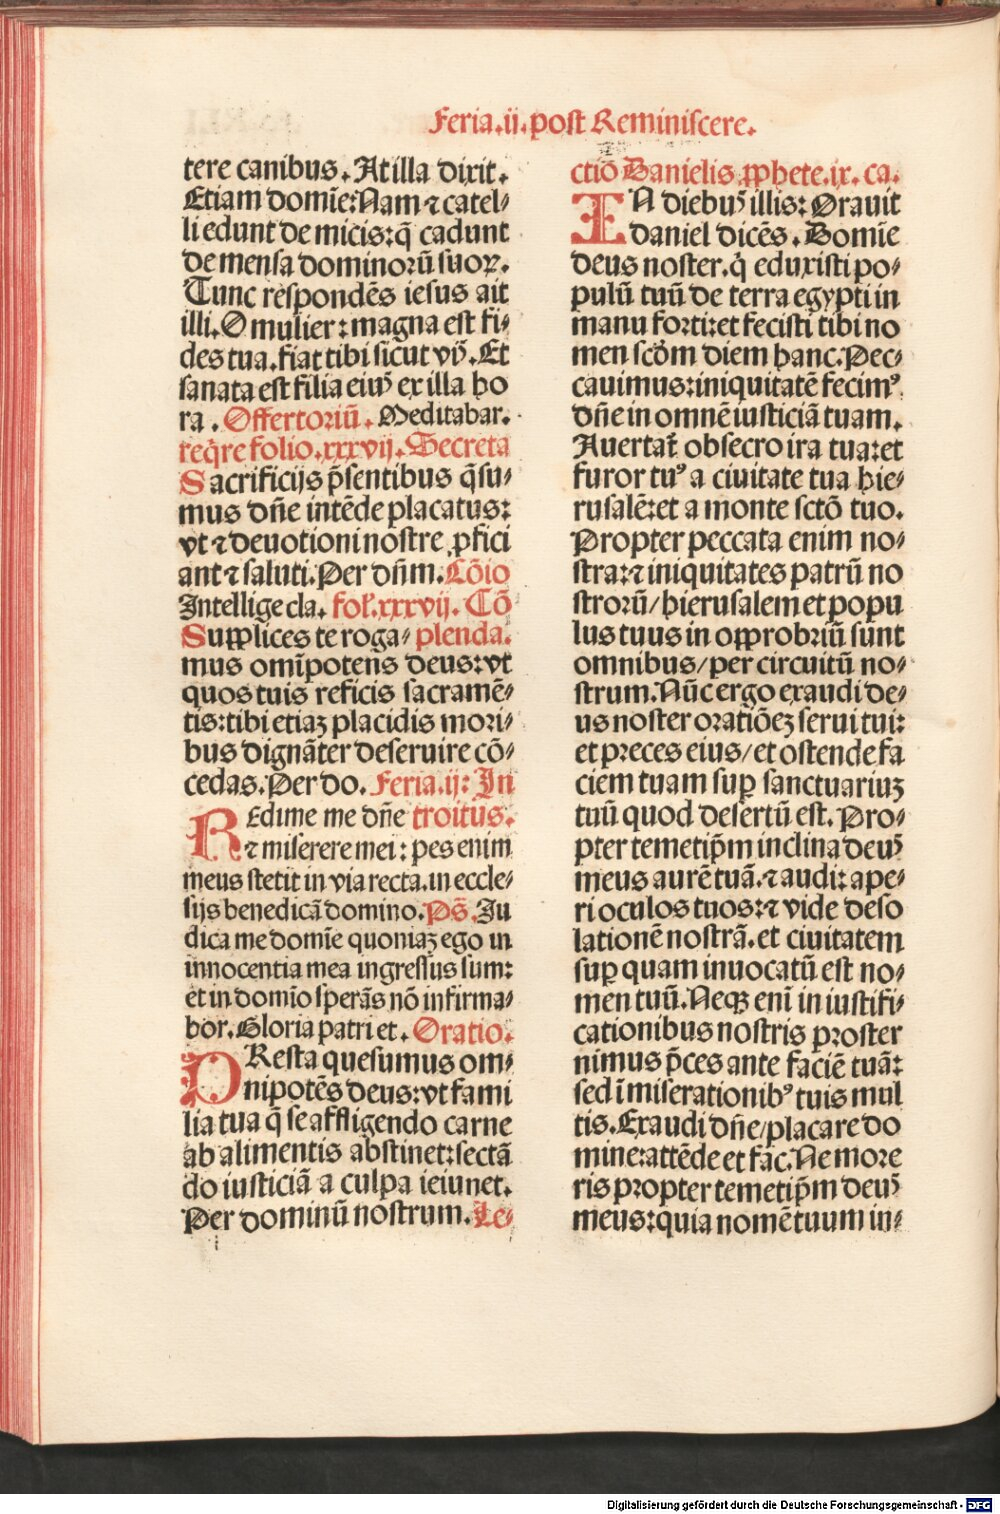 Feria.ij.post Reminiscere.
tere canibus. At illa dixit.
Etiam domīe: Nam ⁊ catel⸗
li edunt de micis: q̄ cadunt
de mensa dominorū suoꝝ.
Tunc respondēs iesus ait
illi. O mulier: magna est fi⸗
des tua. fiat tibi sicut vĳ. Et
sanata est filia eiuꝰ ex illa ho
ra. Offertoriū. Meditabar.
reqͥre folio.xxxvij. Secreta
Sacrificijs p̄sentibus q̄su⸗
mus dn̄e intēde placatus:
vt ⁊ deuotioni nostre ꝓfici
ant ⁊ saluti. Per dn̄m. Cōio
Intellige cla. fol.xxxvij. Cō
Supplices te roga⸗ plenda.
mus omīpotens deus: vt
quos tuis reficis sacramē⸗
tis: tibi etiaꝫ placidis mori⸗
bus dignāter deseruire cō⸗
cedas. Per do. Feria.ij: In
REdime me dn̄e troitus.
⁊ miserere mei: pes enim
meus stetit in via recta. in eccle⸗
sijs benedicā domino. Ps̄. Ju
dica me domīe quoniaꝫ ego in
innocentia mea ingressus sum:
et in domīo sperās nō infirma⸗
bor. Gloria patri et. Oratio.
PResta quesumus om⸗
nipotēs deus: vt fami
lia tua q̄ se affligendo carne
ab alimentis abstinet: sectā
do iusticiā a culpa ieiunet.
Per dominū nostrum. Le⸗
ctiō Danielis ꝓphete.ix. ca.
IN diebuꝰ illis: Orauit
daniel dicēs. Domīe
deus noster. qͥ eduxisti po⸗
pulū tuū de terra egypti in
manu forti: et fecisti tibi no
men scd̄m diem hanc. Pec⸗
cauimus: iniquitatē fecimꝰ
dn̄e in omnē iusticiā tuam.
Auertat̄ obsecro ira tua: et
furor tuꝰ a ciuitate tua hie⸗
rusalē: et a monte sctō tuo.
Propter peccata enim no⸗
stra: ⁊ iniquitates patrū no
strorū/ hierusalem et popu
lus tuus in opprobriū sunt
omnibus/ per circuitū no⸗
strum. Nūc ergo exaudi de⸗
us noster oratiōeꝫ serui tui:
et preces eius/ et ostende fa
ciem tuam suꝑ sanctuariuꝫ
tuū quod desertū est. Pro⸗
pter temetip̄m inclina deuꝰ
meus aurē tuā. ⁊ audi: ape⸗
ri oculos tuos: ⁊ vide deso
lationē nostrā. et ciuitatem
suꝑ quam inuocatū est no⸗
men tuū. Neqꝫ enī in iustifi⸗
cationibus nostris proster
nimus p̄ces ante faciē tuā:
sed ī miserationibꝰ tuis mul
tis. Exaudi dn̄e/ placare do
mine: attēde et fac. Ne more
ris propter temetip̄m deuꝰ
meus: quia nomē tuum in⸗
Digitalisierung gefördert durch die Deutsche Forschungsgemeinschaft - DFG